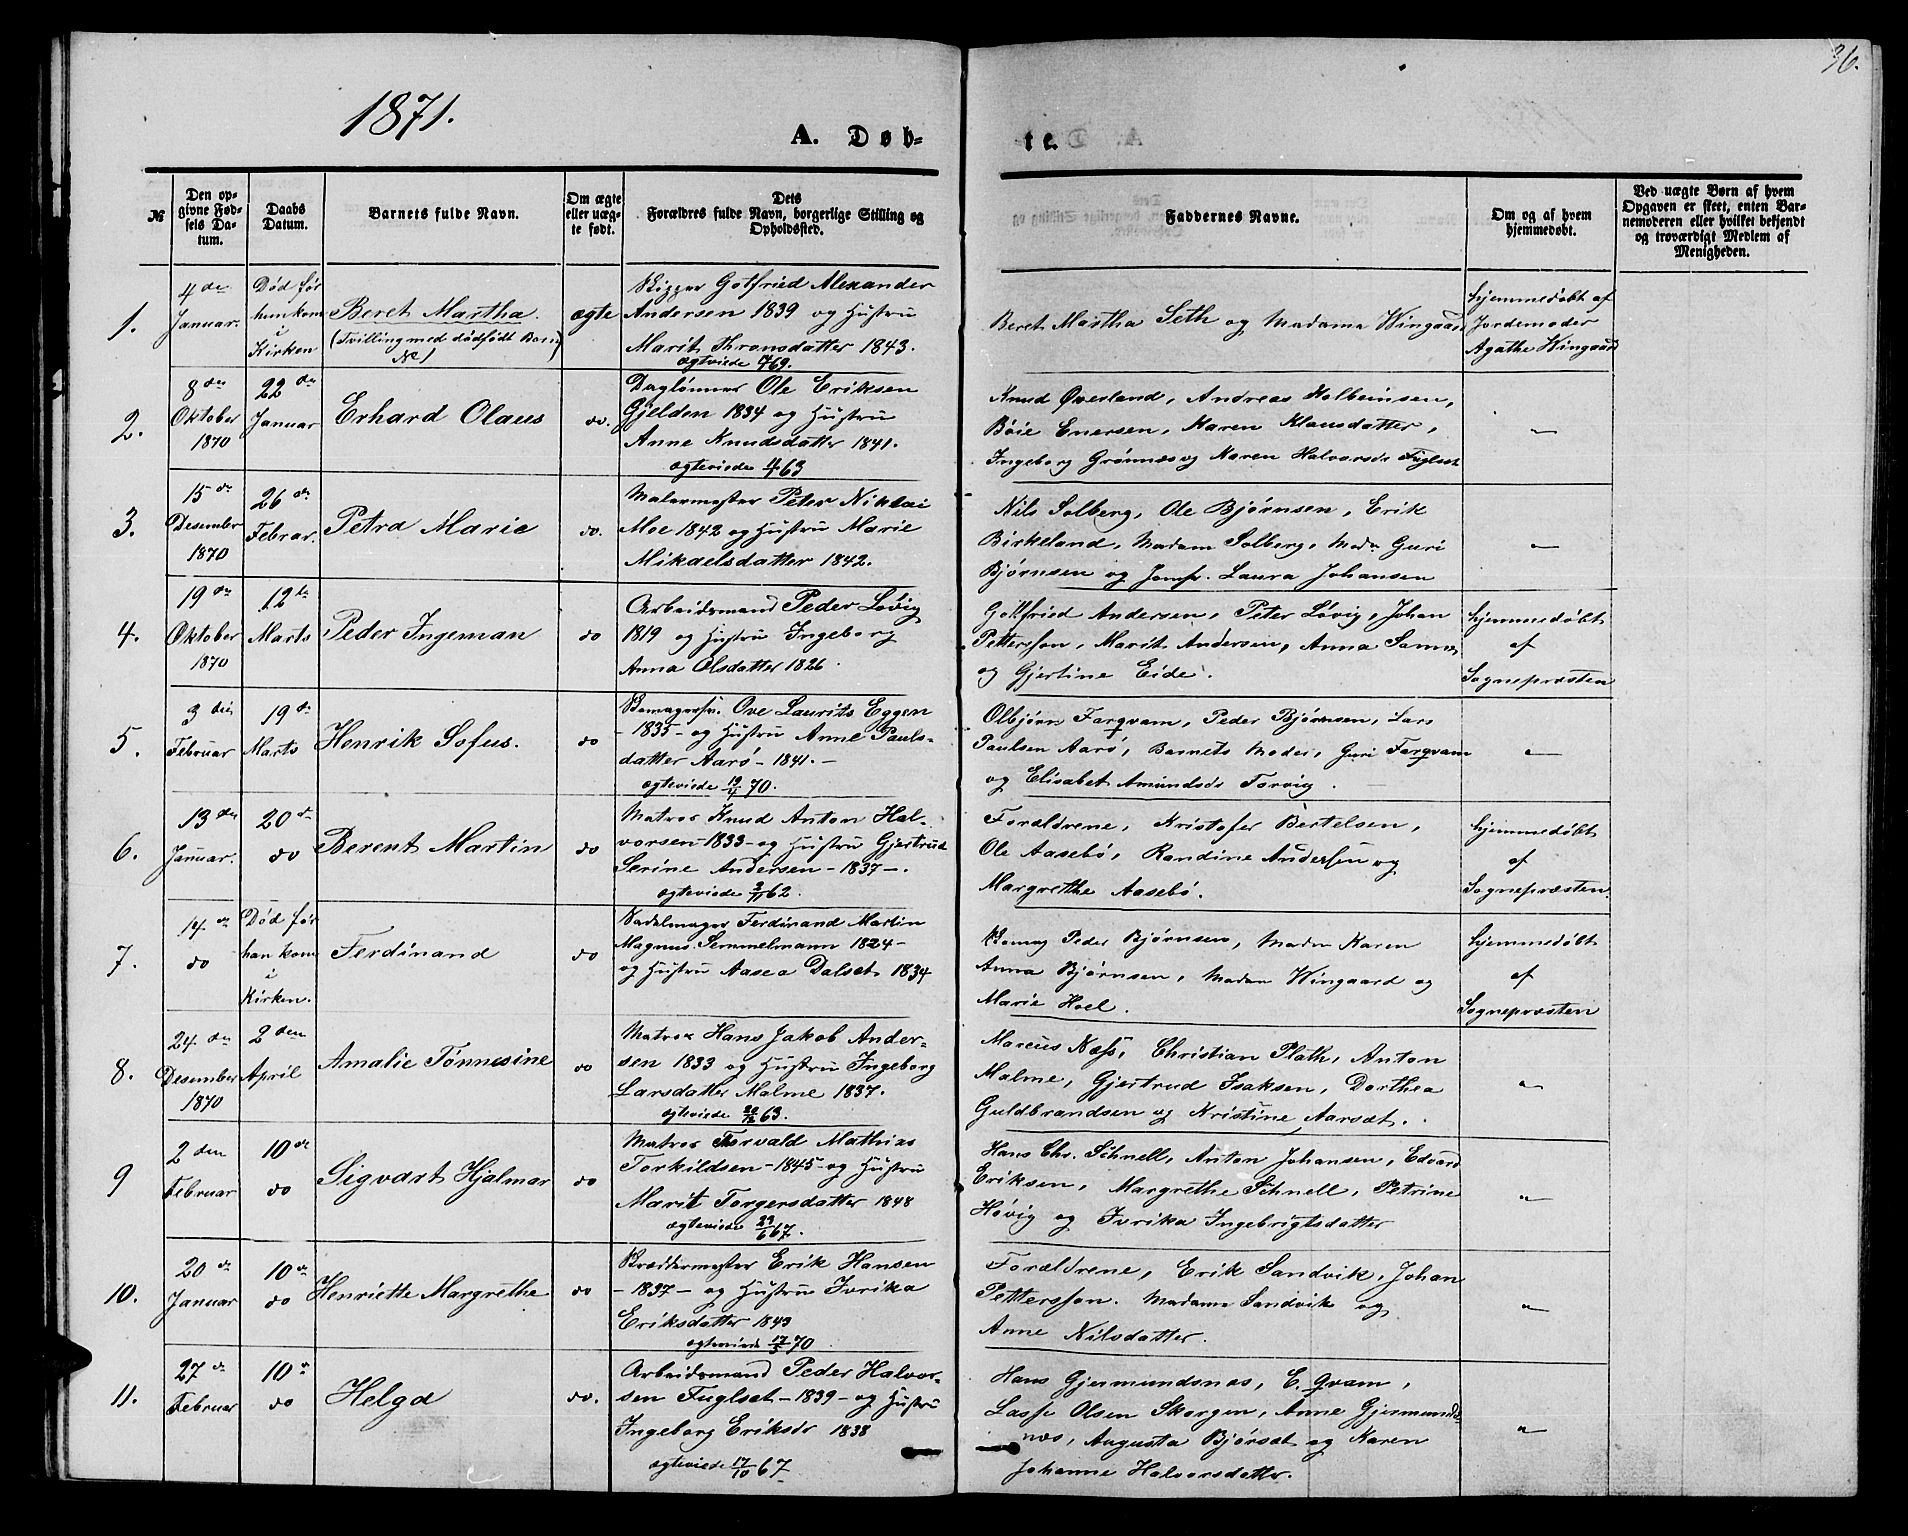 36.
1871.
A. Døb-
te.
№
Den op-
givne Fød-
sels Da-
tum.
Daabs
Datum.
Barnets fulde Navn.
Om ægte
eller uæg-
te født.
Dets
Forældres fulde Navn, borgerlige Stilling og
Opholdssted.
Faddernes Navne.
Om og af hvem
hjemmedøbt.
Ved uægte Børn af hvem
Opgaven er skeet, enten Bar-
nemoderen eller hvilket bekjendt
og troværdigt Medlem af
Menigheden.
1.
4de
Januar.
Død før
hun kom
i
Kirken
Beret Martha.
(Tvilling med dødfødt Barn
№ 1
ægte
Skipper Gotfried Alexander
Andersen 1839 og Hustru
Marit Thronsdatter 1843.
ægteviede 69.
Beret Martha Seth og Madame Wingaard
hjemmedøbt af
Jordemoder
Agathe Wingaard
2.
8de
Oktober
1870
22de
Januar
Erhard Olaus
do.
Daglønner Ole Eriksen
Gjelden 1834 og Hustru
Anne Knudsdatter 1841.
ægteviede 63
Knud Øverland, Andreas Kolbeinsen,
Böie Enersen, Maren Klausdatter,
Ingeborg Grønnes og Karen Halvorsdr Fuglset
"
3.
15de
Desember
1870
26de
Februar.
Petra Marie
do.
Malermester Peter Nikolai
Moe 1842 og Hustru Marie
Mikaelsdatter 1842.
Nils Solberg, Ole Bjørnsen, Erik
Birkeland, Madam Solberg, Mad. Guri
Bjørnsen og Jomfr. Laura Johansen
"
4.
19de
Oktober
1870
12te
Marts
Peder Ingeman
do
Arbeidsmand Peder Løvig
1819 og Hustru Ingeborg
Anna Olsdatter 1826.
Gotfried Andersen, Peter Løvig, Johan
Petterson, Marit Andersen, Anna Sannes
og Gjertine Eide.
hjemmedøbt
af
Sognepræsten
5.
3die
Februar
19de
Marts
Henrik Sofus.
do
Ove Laurits Eggen
- 1835 - og Hustru Anne Pauls-
datter Aarö - 1841. -
ægteviede 19/4 70.
Olbjørn Fargvam, Peder Bjørnsen, Lars
Paulsen Aarö, Barnets Moder, Guri Fargvam
og Elisabet Amundsdr Torvig.
"
6.
13de
Januar.
20de
do
Berent Martin
do
Matros Knud Anton Hal-
vorsen - 1833 - og Hustru Gjertrud
Serine Andersen - 1837 -.
ægteviede 2/11 62.
Forældrene, Kristofer Bertelsen,
Ole Aasebö, Randine Andersen og
Margrethe Aasebö.
hjemmedøbt
af
Sognepræsten.
7.
14de
do
Død før
han kom
i
Kirken.
Ferdinand
do
Sadelmager Ferdinand Martin
Magnus Semmelmann 1824 -
og Hustru Aasea Dalset 1834
Peder Bjørnsen, Madm Karen
Anna Bjørnsen, Madam Wingaard og
Marie Hoel.
hjemmedøbt
af
Sognepræsten
8.
24de
Desember
1870
2den
April
Amalie Tønnesine
do
Matros Hans Jakob Ander-
sen 1833 og Hustru Ingeborg
Larsdatter Malme 1837.
ægteviede 20/12 63.
Marcus Næss, Christian Plath, Anton
Malme, Gjertrud Isaksen, Dorthea
Guldbrandsen og Kristine Aarsæt.
"
9
2den
Februar
10de
do
Sigvart Hjalmar
do
Matros Torvald Mathias
Torkildsen - 1845 - og Hustru
Marit Torgersdatter 1848
ægteviede 29/6 67.
Hans Chr. Schnell, Anton Johansen, Edvard
Eriksen, Margrethe Schnell, Petrine
Høvig og Ivrika Ingebrigtsdatter
"
10.
20de
Januar
10de
do
Henriette Margrethe
do
Bræddermester Erik Hansen
- 1837 - og Hustru Ivrika
Eriksdatter 1843
ægteviede 17/5 70
Forældrene, Erik Sandvik, Johan
Petterson, Madam Sandvik og
Anne Nilsdatter.
"
11.
27de
Februar
10de
do
Helga
do.
Arbeidsmand Peder Halvor-
sen Fuglset - 1839 - og Hustru
Ingeborg Eriksdr 1838
ægteviede 17/10 67
Hans Gjermundsnæs, E. Qvam,
Lasse Olsen Skorgen, Anne Gjermunds-
næs, Augusta Bjørset og Karen
Johanne Halvorsdatter.
"